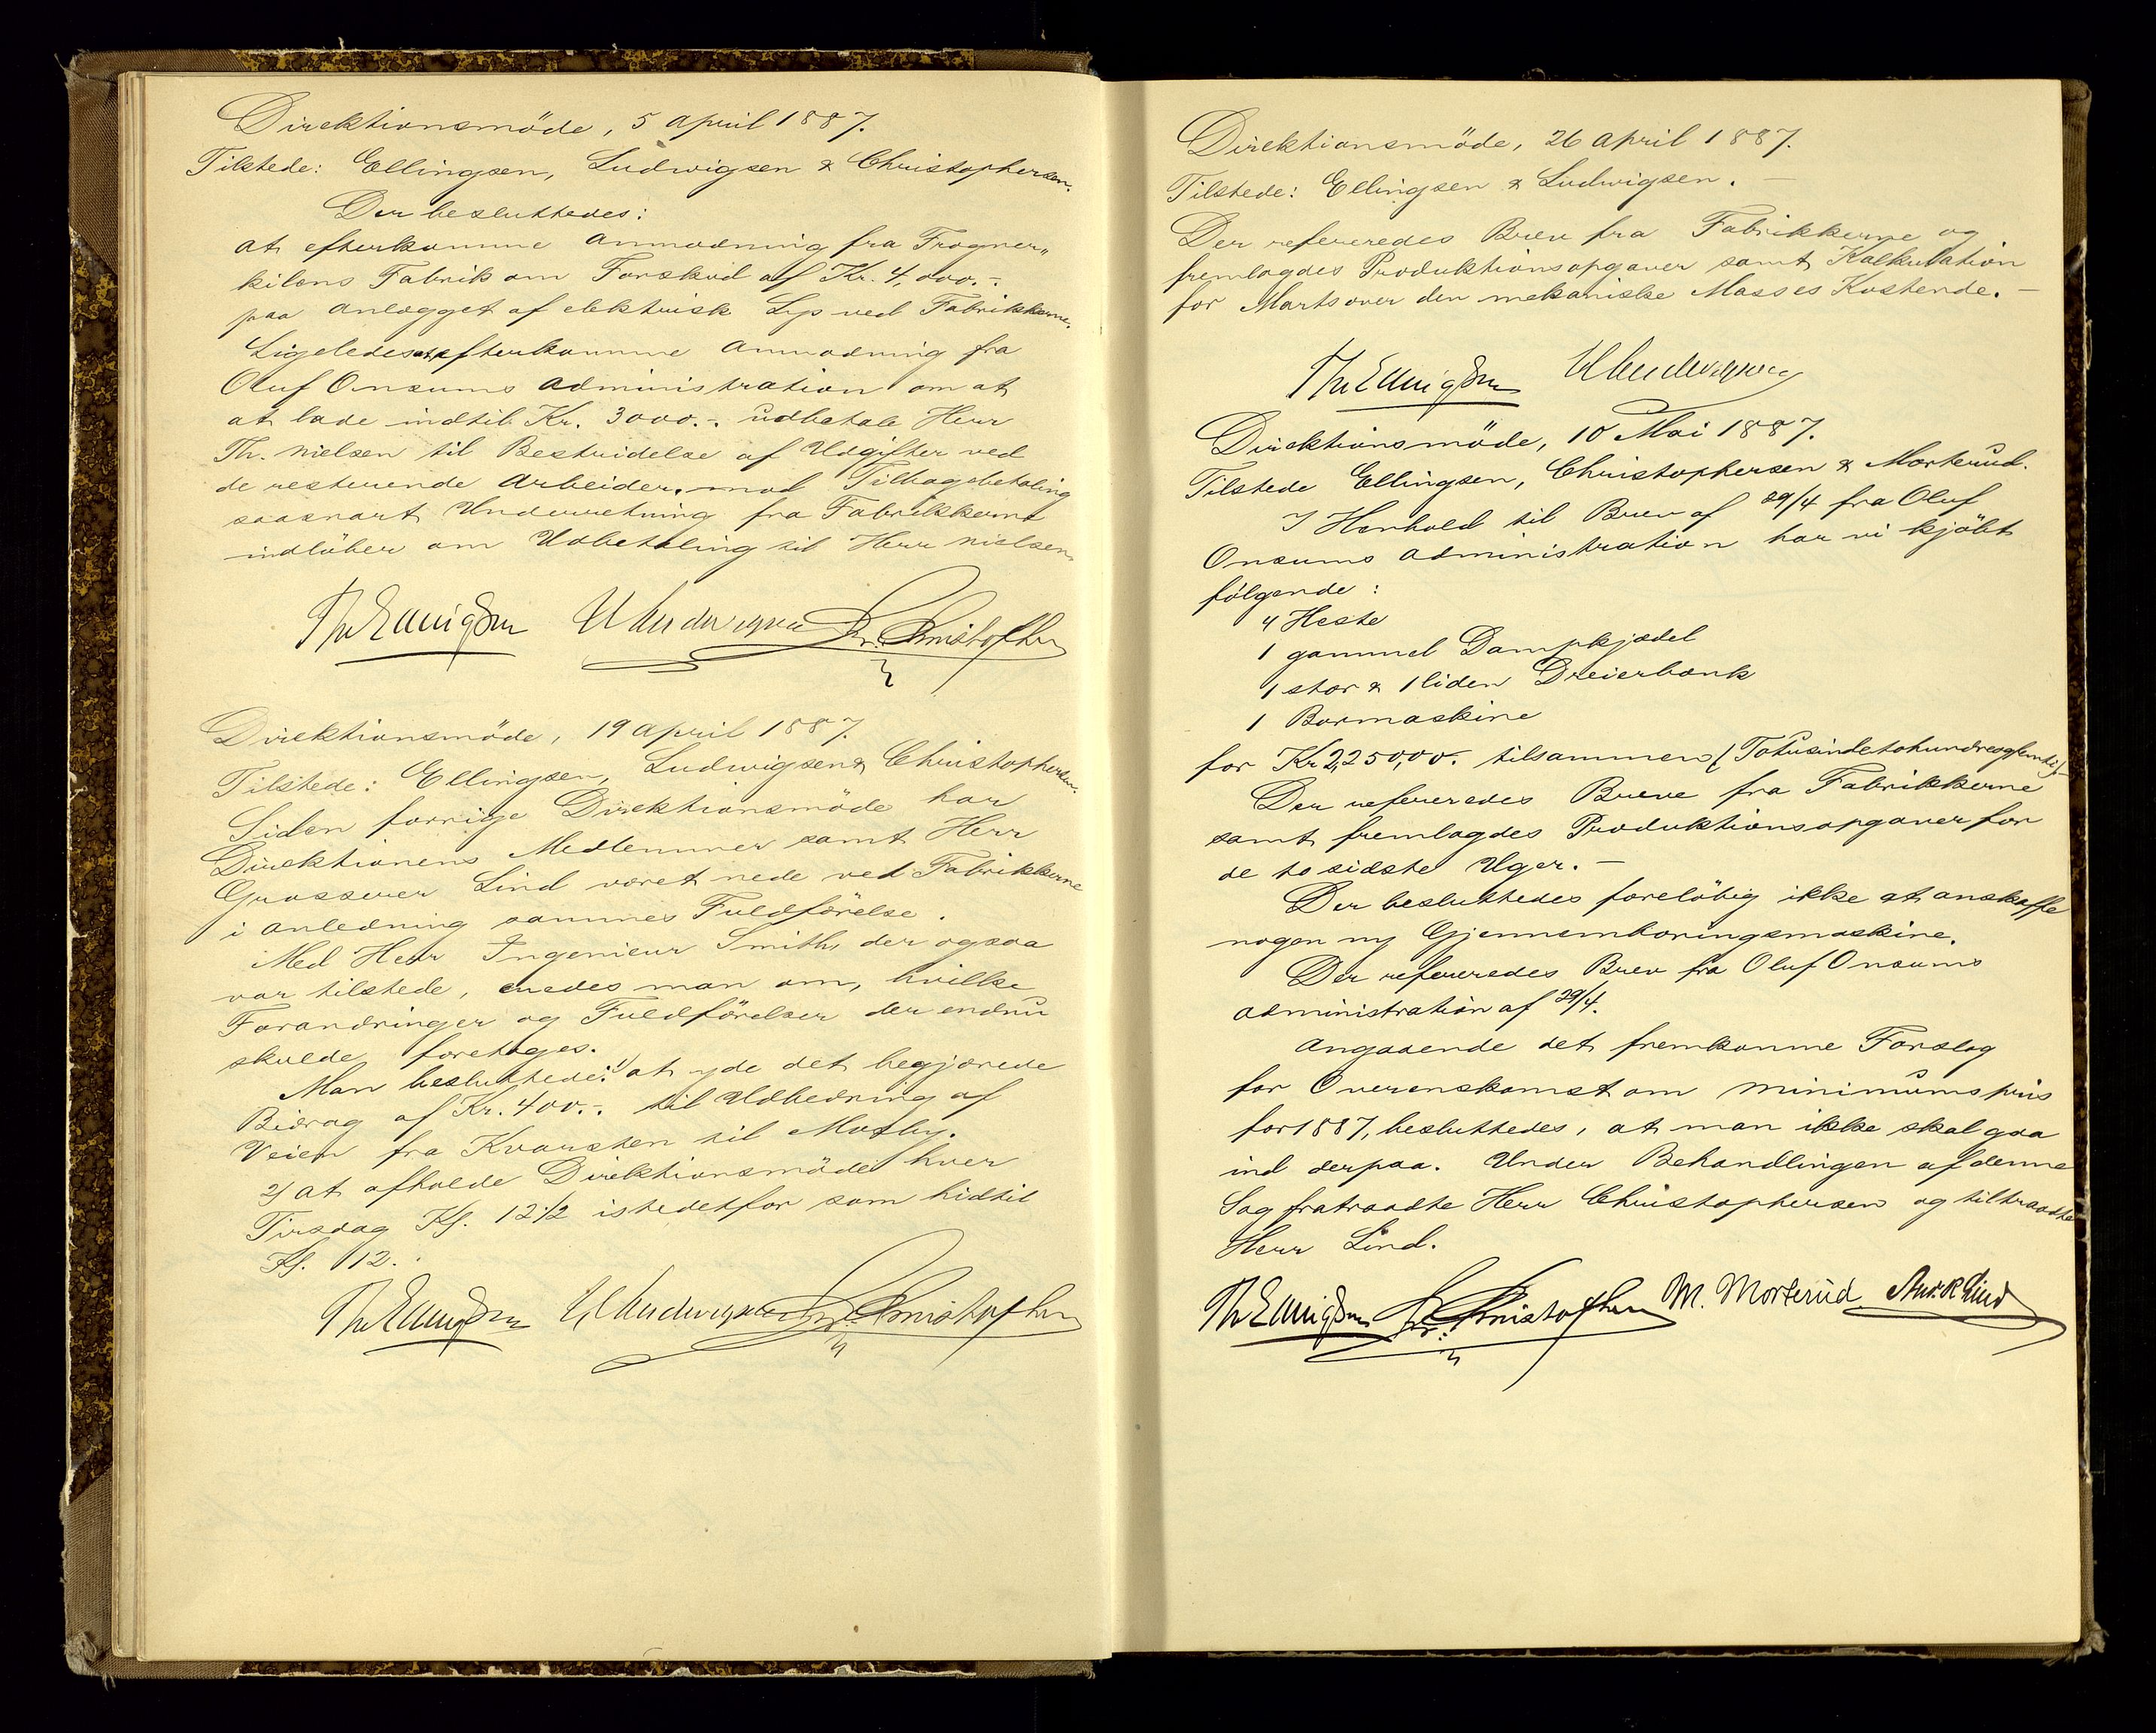 Direktionsmöde, 5 April 1887.
Tilstede: Ellingsen, Ludwigsen & Christophersen.
Der besluttedes:
at efterkomme Anmodning fra Frogner„
kilens Fabrik om Forskud af Kr. 4,000.-.
paa Anlægget af elektrisk Lys ved Fabrikkerne.
Ligeledes at efterkomme Anmodning fra
Oluf Onsums Administration om at
at lade indtil Kr. 3000.-. udbetale Herr
Th. Nielsen til Bestridelse af Udgifter ved
de resterende Arbeider, mod Tilbagebetaling
saasnart Underretning fra Fabrikkerne
indlöber om Udbetaling til Herr Nielsen.
Th Ellingsen Ludwigsen Chr. Christophersen
Direktionsmöde, 19 April 1887.
Tilstede: Ellingsen, Ludwigsen & Christophersen.
Siden forrige Direktionsmöde har
Direktionens Medlemmer samt Herr
Grosserer Lind været nede ved Fabrikkerne
i Anledning sammes Fuldförelse.
Med Herr Ingenieur Smith, der ogsaa
var tilstede, enedes man om, hvilke
Forandringer og Fuldförelser der endnu
skulde foretages.
Man besluttede: 1) at yde det begjærede
Bidrag af Kr. 400.-. til Udbedring af
Veien fra Kvarsten til Mosby.
2) at afholde Direktionsmöde hver
Tirsdag Kl. 12½ istedetfor som hidtil
Kl. 12.
Th Ellingsen Ludwigsen Chr. Christophersen
Direktionsmöde, 26 April 1887.
Tilstede: Ellingsen & Ludwigsen. –
Der refereredes Brev fra Fabrikkerne og
fremlagdes Produktionsopgaver samt Kalkulation
for Marts over den mekaniske Masses Kostende. –
Th Ellingsen Ludwigsen
Direktionsmöde, 10 Mai 1887.
Tilstede Ellingsen, Christophersen & Morterud.
I Henhold til Brev af 29/4 fra Oluf
Onsums Administration har vi kjöbt
fölgende:
4 Heste
1 gammel Dampkjædel
1 stor & 1 liden Dreierbænk
1 Bormaskine
for Kr 2,250,00. tilsammen (Totusindetohundredeogfemti). –
Der refereredes Breve fra Fabrikkerne
samt fremlagdes Produktionsopgaver for
de to sidste Uger. –
Der besluttedes forelöbig ikke at anskaffe
nogen ny Gjennemboringsmaskine.
Der refereredes Brev fra Oluf Onsums
Administration af 29/4.
Angaaende det fremkomne Forslag
for Overenskomst om Minimumspris
for 1887, besluttedes, at man ikke skal gaa
ind derpaa. Under Behandlingen af denne
Sag fratraadte Herr Christophersen og tiltraadte
Herr Lind.
Th Ellingsen Chr. Christophersen M. Morterud Lind